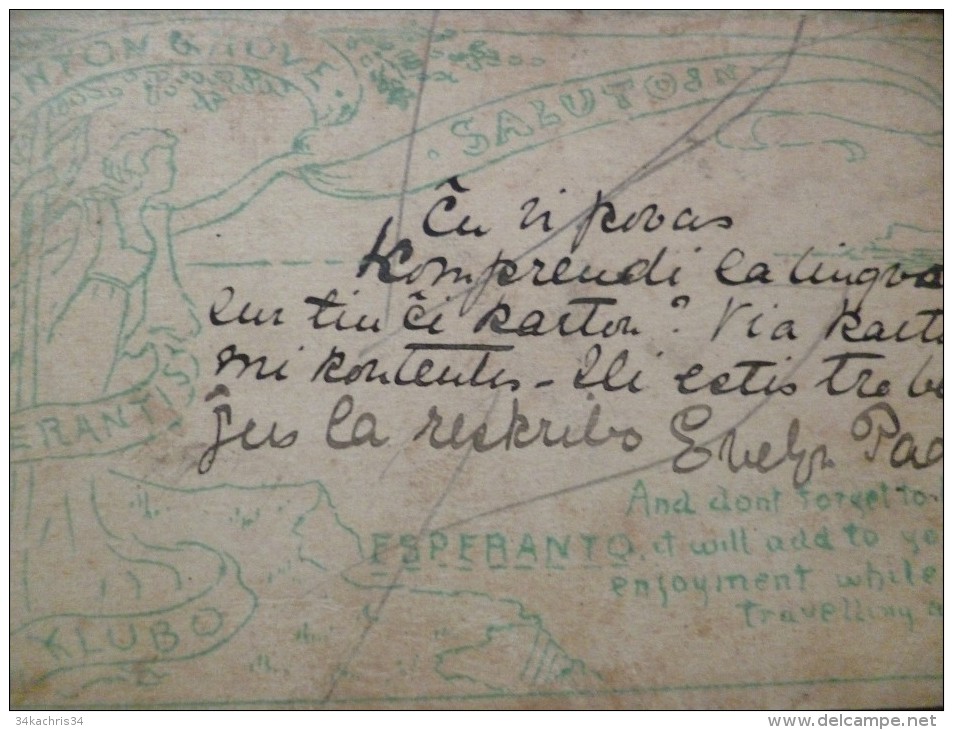 NTON & HOVE
SALUTOJN
Ĉu vi povas
Komprendi la lingvo
sur tiu ĉi karton? Via karto
mi kontentis - Ili estis tre be
Ĝis la reskribo Evelyn Pad
ERANTIS
And dont forget to
ESPERANTO, it will add to yo
enjoyment while
travelling a
KLUBO
34kachris34
www.delcampe.net